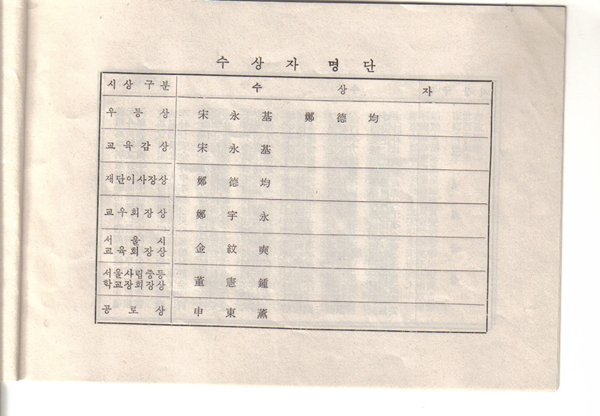 수 상 자 명 단
시 상 구 분 수 상 자
우 등 상 宋 永 基 鄭 德 均
교 육 감 상 宋 永 基
재단이사장상 鄭 德 均
교우회장상 鄭 宇 永
서 울 시
교육회장상 金 紋 奭
서울사립중등
학교장회장상 董 憲 鍾
공 로 상 申 東 薰